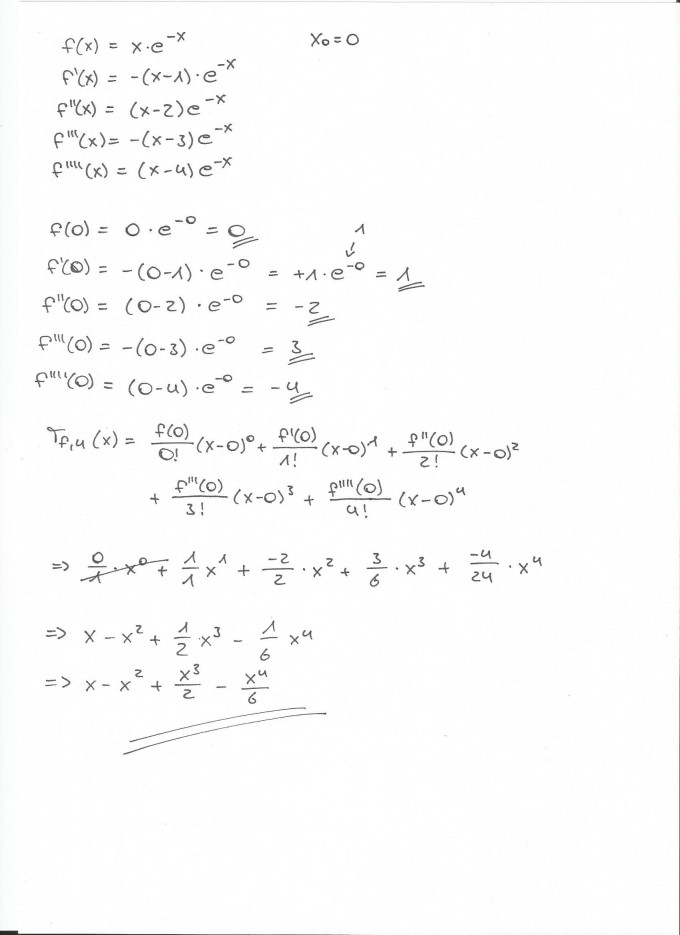 f(x) = x·e^-x x₀=0
f'(x) = -(x-1)·e^-x
f''(x) = (x-2)e^-x
f'''(x)= -(x-3)e^-x
f''''(x) = (x-4)e^-x
f(0) = 0·e^-0 = 0 1
f'(0) = -(0-1)·e^-0 = +1·e^-0 = 1
f''(0) = (0-2)·e^-0 = -2
f'''(0) = -(0-3)·e^-0 = 3
f''''(0) = (0-4)·e^-0 = -4
T_f,4 (x) = f(0)/0! (x-0)^0 + f'(0)/1! (x-0)^1 + f''(0)/2! (x-0)^2
+ f'''(0)/3! (x-0)^3 + f''''(0)/4! (x-0)^4
=> 0/1·x^0 + 1/1 x^1 + -2/2·x^2 + 3/6·x^3 + -4/24·x^4
=> x - x^2 + 1/2·x^3 - 1/6 x^4
=> x - x^2 + x^3/2 - x^4/6